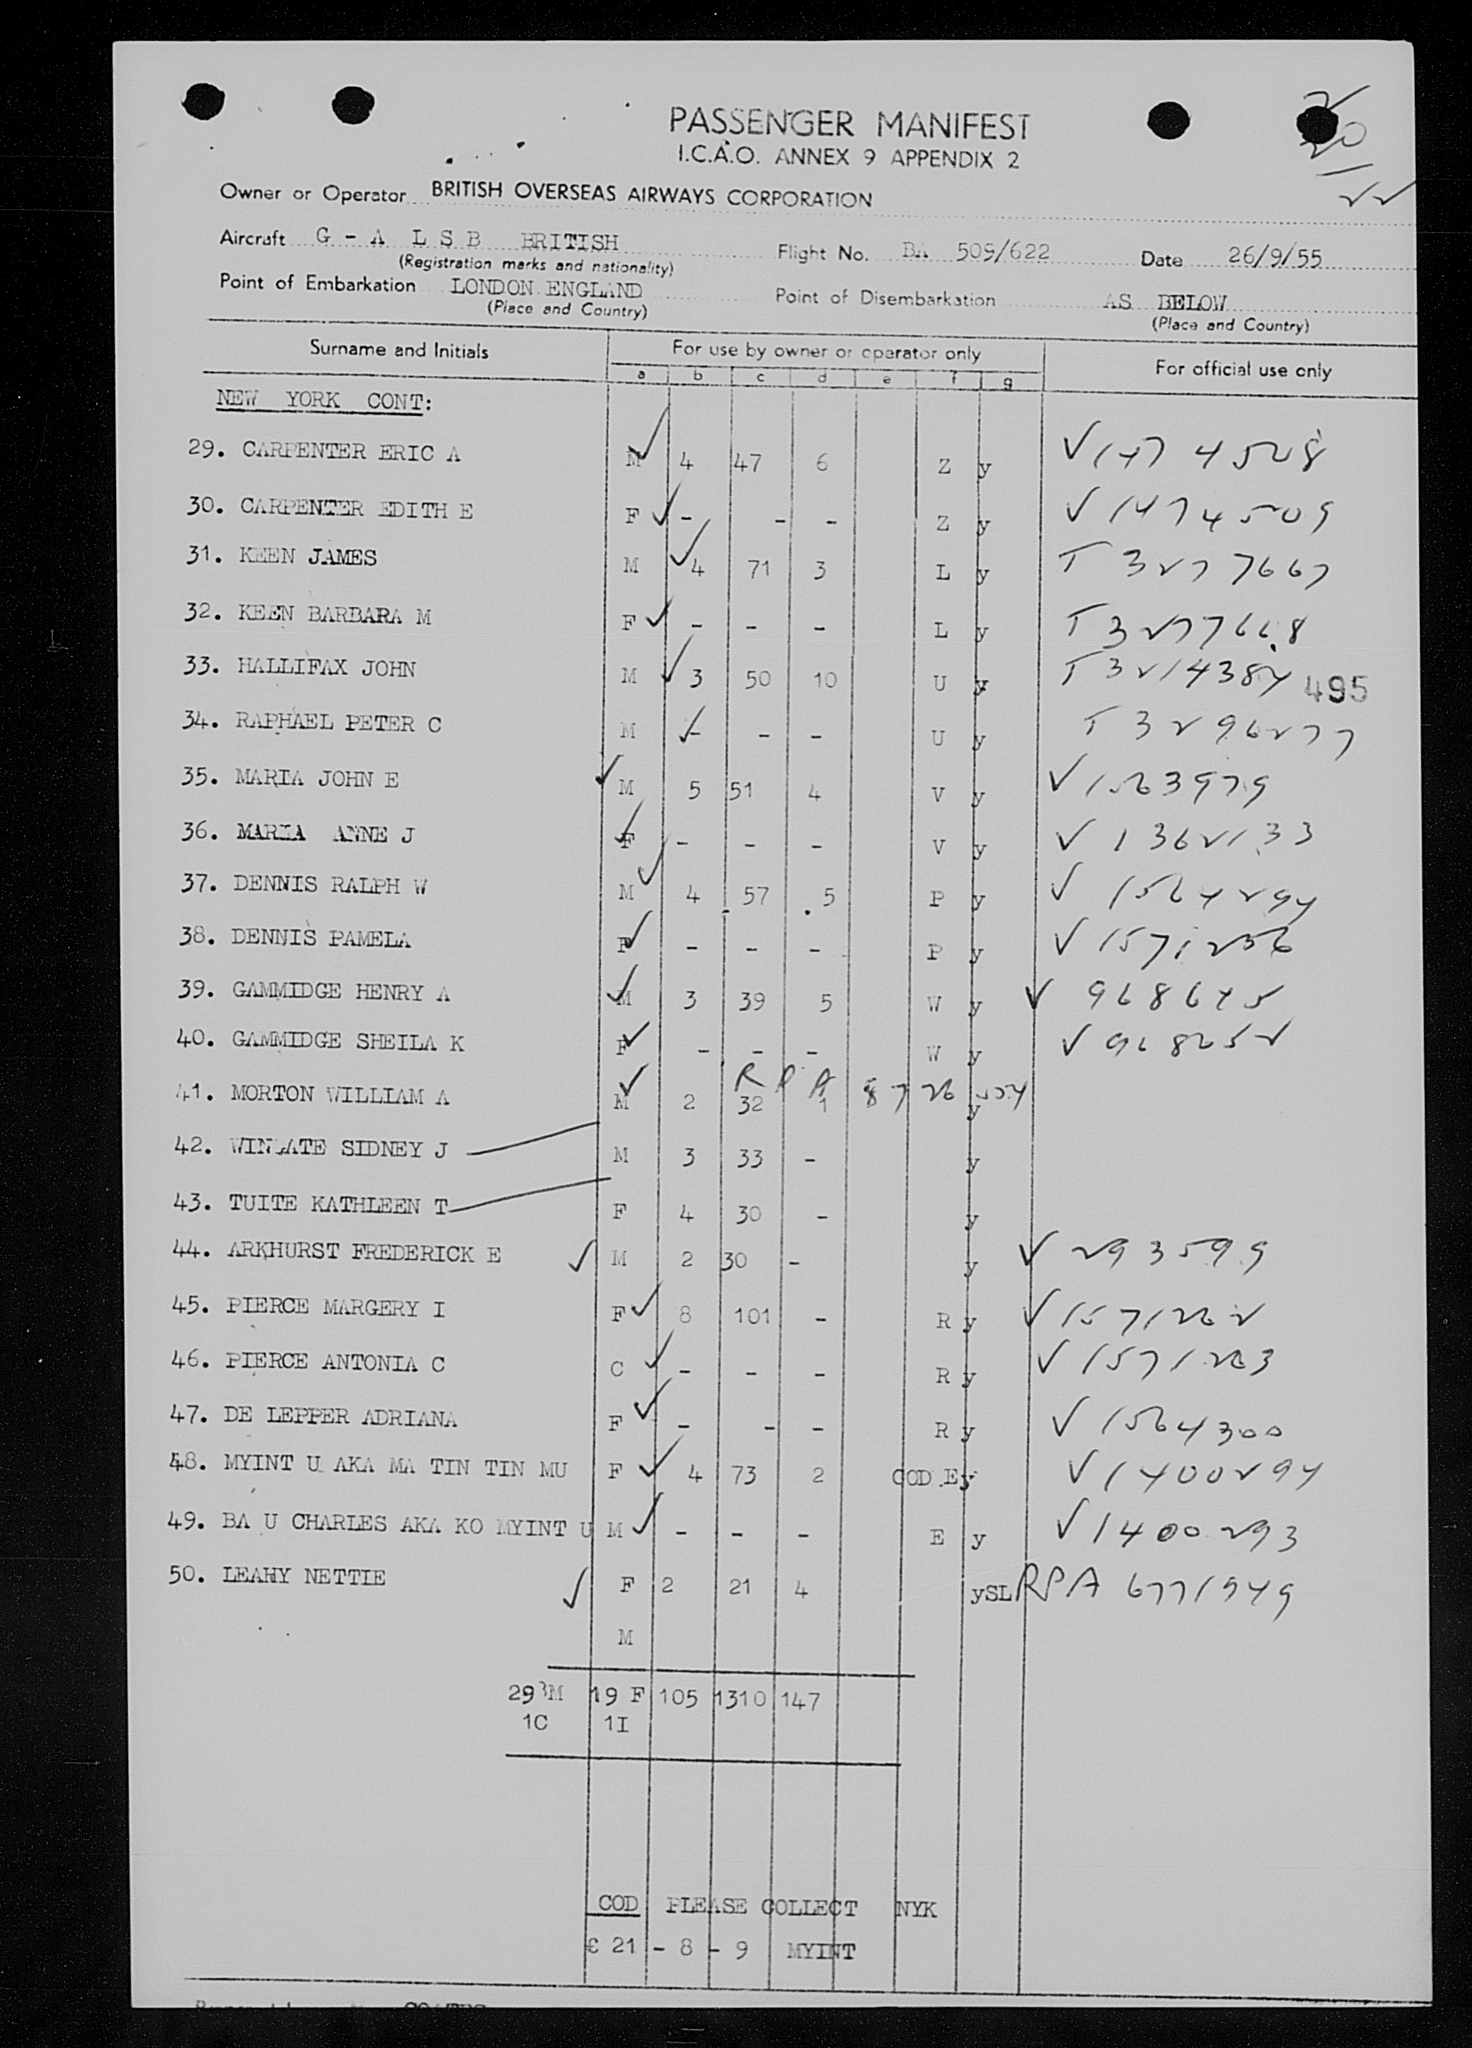 PASSENGER MANIFEST
I.C.A.O. ANNEX 9 APPENDIX 2
Owner or Operator BRITISH OVERSEAS AIRWAYS CORPORATION
Aircraft G - A L S B BRITISH Flight No. BA 509/622 Date 26/9/55
(Registration marks and nationality)
Point of Embarkation LONDON ENGLAND Point of Disembarkation AS BELOW
(Place and Country) (Place and Country)
Surname and Initials For use by owner or operator only For official use only
a b c d e f g
NEW YORK CONT:
29. CARPENTER ERIC A M 4 47 6 Z y V 1474508
30. CARPENTER EDITH E F - - - Z y V 1474509
31. KEEN JAMES M 4 71 3 L y T 3277667
32. KEEN BARBARA M F - - - L y T 3277668
33. HALLIFAX JOHN M 3 50 10 U y T 3214384 495
34. RAPHAEL PETER C M - - - U y T 3296277
35. MARIA JOHN E M 5 51 4 V y V 1563979
36. MARIA ANNE J F - - - V y V 1362133
37. DENNIS RALPH W M 4 57 5 P y V 1564294
38. DENNIS PAMELA F - - - P y V 1571256
39. GAMMIDGE HENRY A M 3 39 5 W y V 968645
40. GAMMIDGE SHEILA K F - - - W y V 968252
41. MORTON WILLIAM A M 2 32 1 y RPA
42. WINGATE SIDNEY J M 3 33 - y
43. TUITE KATHLEEN T F 4 30 - y
44. ARKHURST FREDERICK E M 2 30 - y V 293599
45. PIERCE MARGERY I F 8 101 - R y V 1571262
46. PIERCE ANTONIA C C - - - R y V 1571263
47. DE LEPPER ADRIANA F - - - R y V 1564300
48. MYINT U AKA MA TIN TIN MU F 4 73 2 COD E y V 1400294
49. BA U CHARLES AKA KO MYINT U M - - - E y V 1400293
50. LEAHY NETTIE F 2 21 4 ySL RPA 6771949
M
29 M 19 F 105 1310 147
1C 1I
COD PLEASE COLLECT NYK
£ 21 - 8 - 9 MYINT